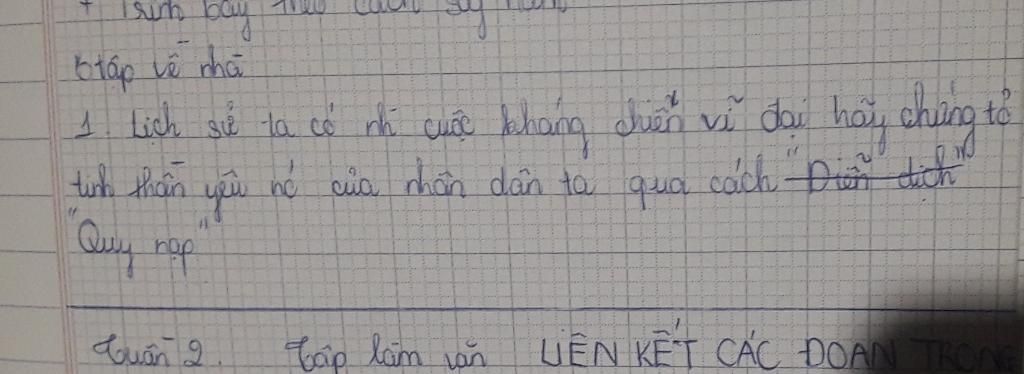 + Trình bày theo cách suy
btập về nhà
1 Lịch sử ta có nh cuộc kháng chiến vĩ đại hãy chứng tỏ
tinh thần yêu nc của nhân dân ta qua cách "Diễn dịch"
"Quy nạp"
Tuần 2. Tập làm văn LIÊN KẾT CÁC ĐOẠN TRONG